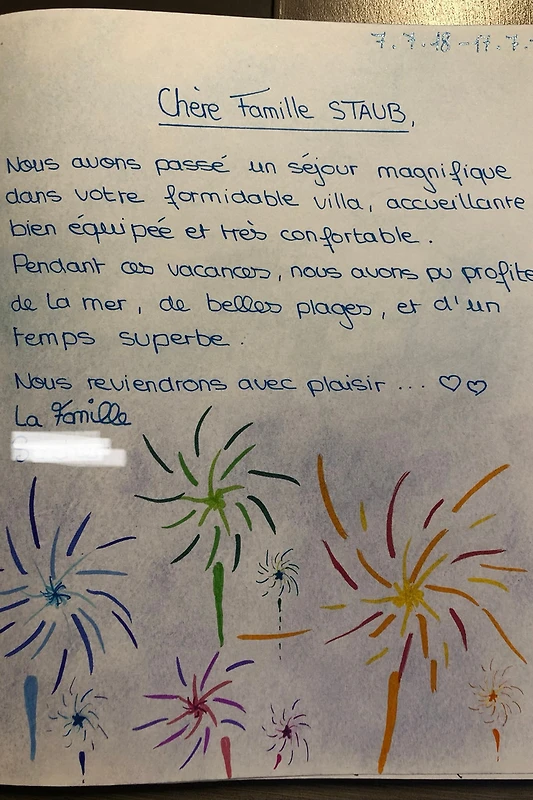 7.7.18 - 17.7.
Chère Famille STAUB,
Nous avons passé un séjour magnifique
dans votre formidable villa, accueillante
bien équipée et très confortable.
Pendant ces vacances, nous avons pu profite
de la mer, de belles plages, et d'un
temps superbe.
Nous reviendrons avec plaisir ... ♡♡
La Famille